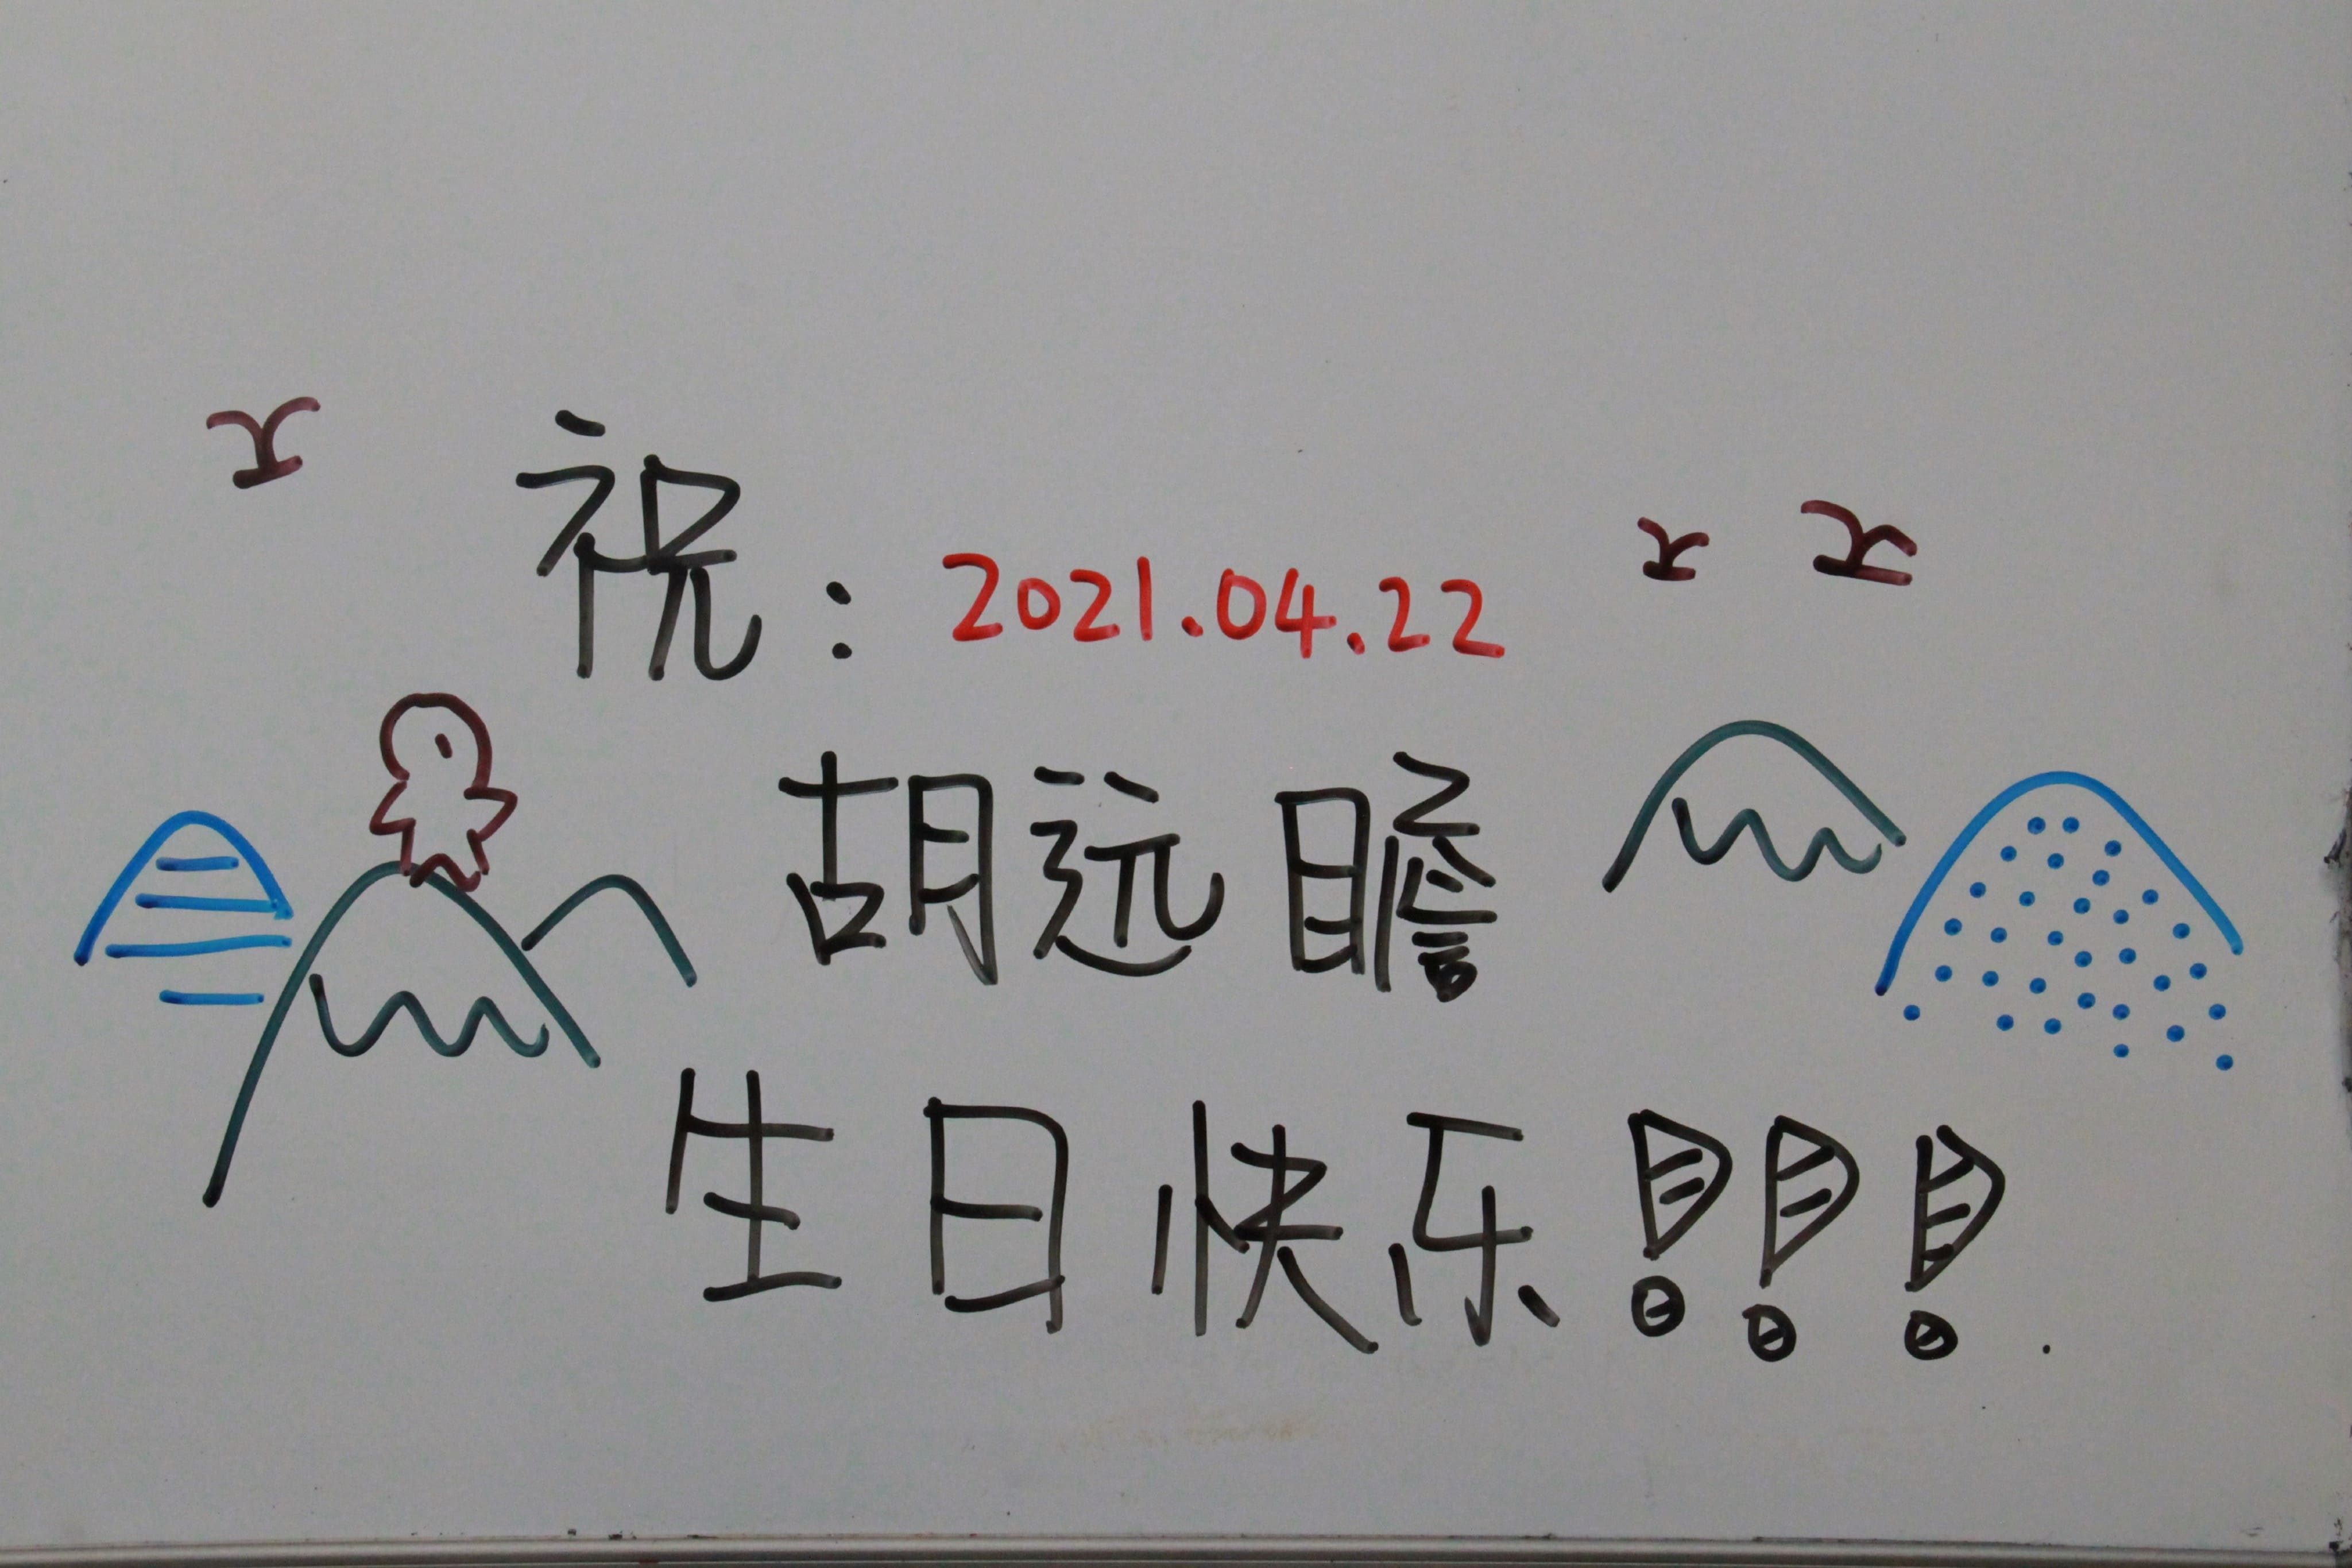 祝：2021.04.22
胡远瞻
生日快乐！！！